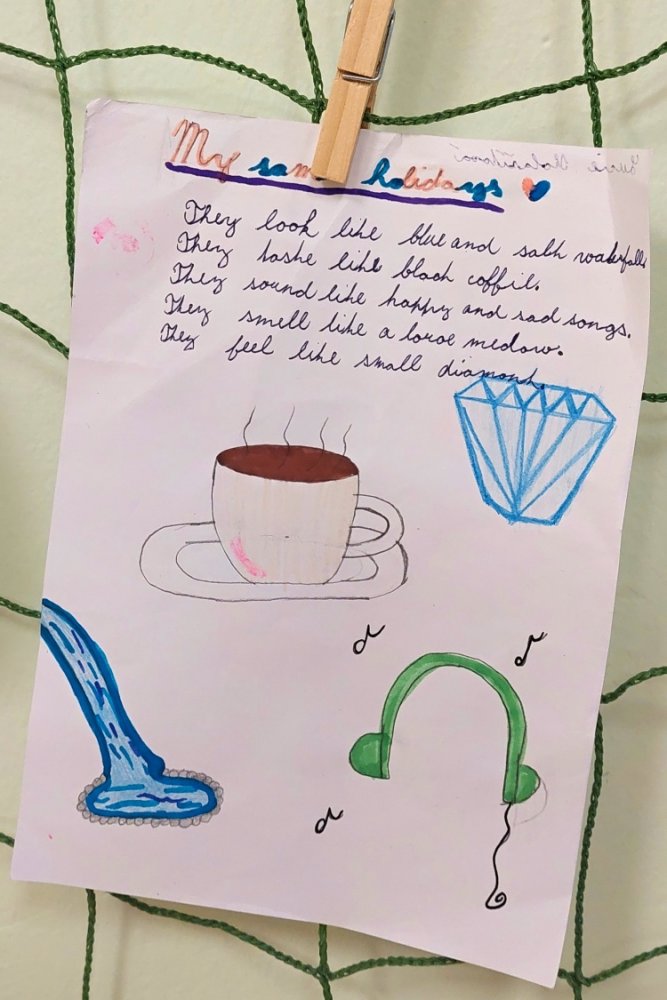 My holidays
They look like blue and salt waterfalls
They taste like black coffil.
They sound like happy and sad songs.
They smell like a large medow.
They feel like small diamond.